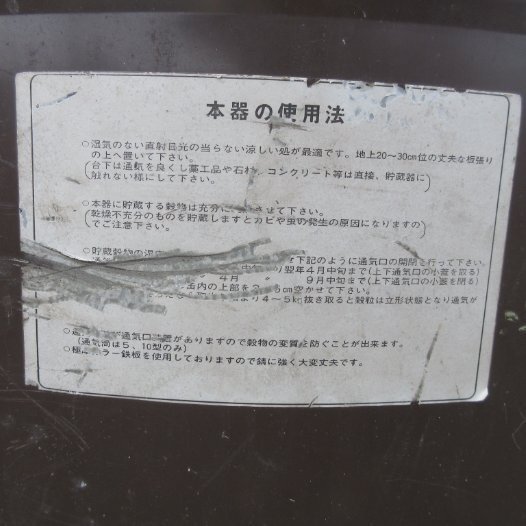 本器の使用法
○湿気のない直射日光の当らない涼しい処が最適です。地上20〜30cm位の丈夫な板張り
の上へ置いて下さい。
(台下は通気を良くし藁工品や石材、コンクリート等は直接、貯蔵器に
触れない様にして下さい。)
○本器に貯蔵する穀物は充分に させて下さい。
(乾燥不充分のものを貯蔵しますとカビや虫の発生の原因になりますの
でご注意下さい。)
○貯蔵穀物の温 下記のように通気口の開閉を行って下さい。
り翌年4月中旬まで(上下通気口の小蓋を取る)
4月 9月中旬まで(上下通気口の小蓋を閉る)
内の上部を 3cm空かせて下さい。
より4〜5kg抜き取ると穀粒は立形状態となり通気が
通気口装置がありますので穀物の変質を防ぐことが出来ます。
(通気筒は5、10型のみ)
カラー鉄板を使用しておりますので錆に強く大変丈夫です。